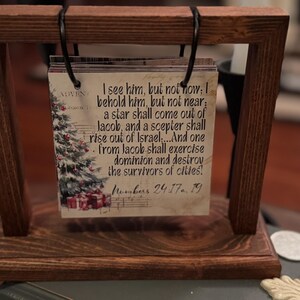 ADVEN
I see him, but not now; I
behold him, but not near;
a star shall come out of
Jacob, and a scepter shall
rise out of Israel....And one
from Jacob shall exercise
dominion and destroy
the survivors of cities!
Numbers 24:17a, 19